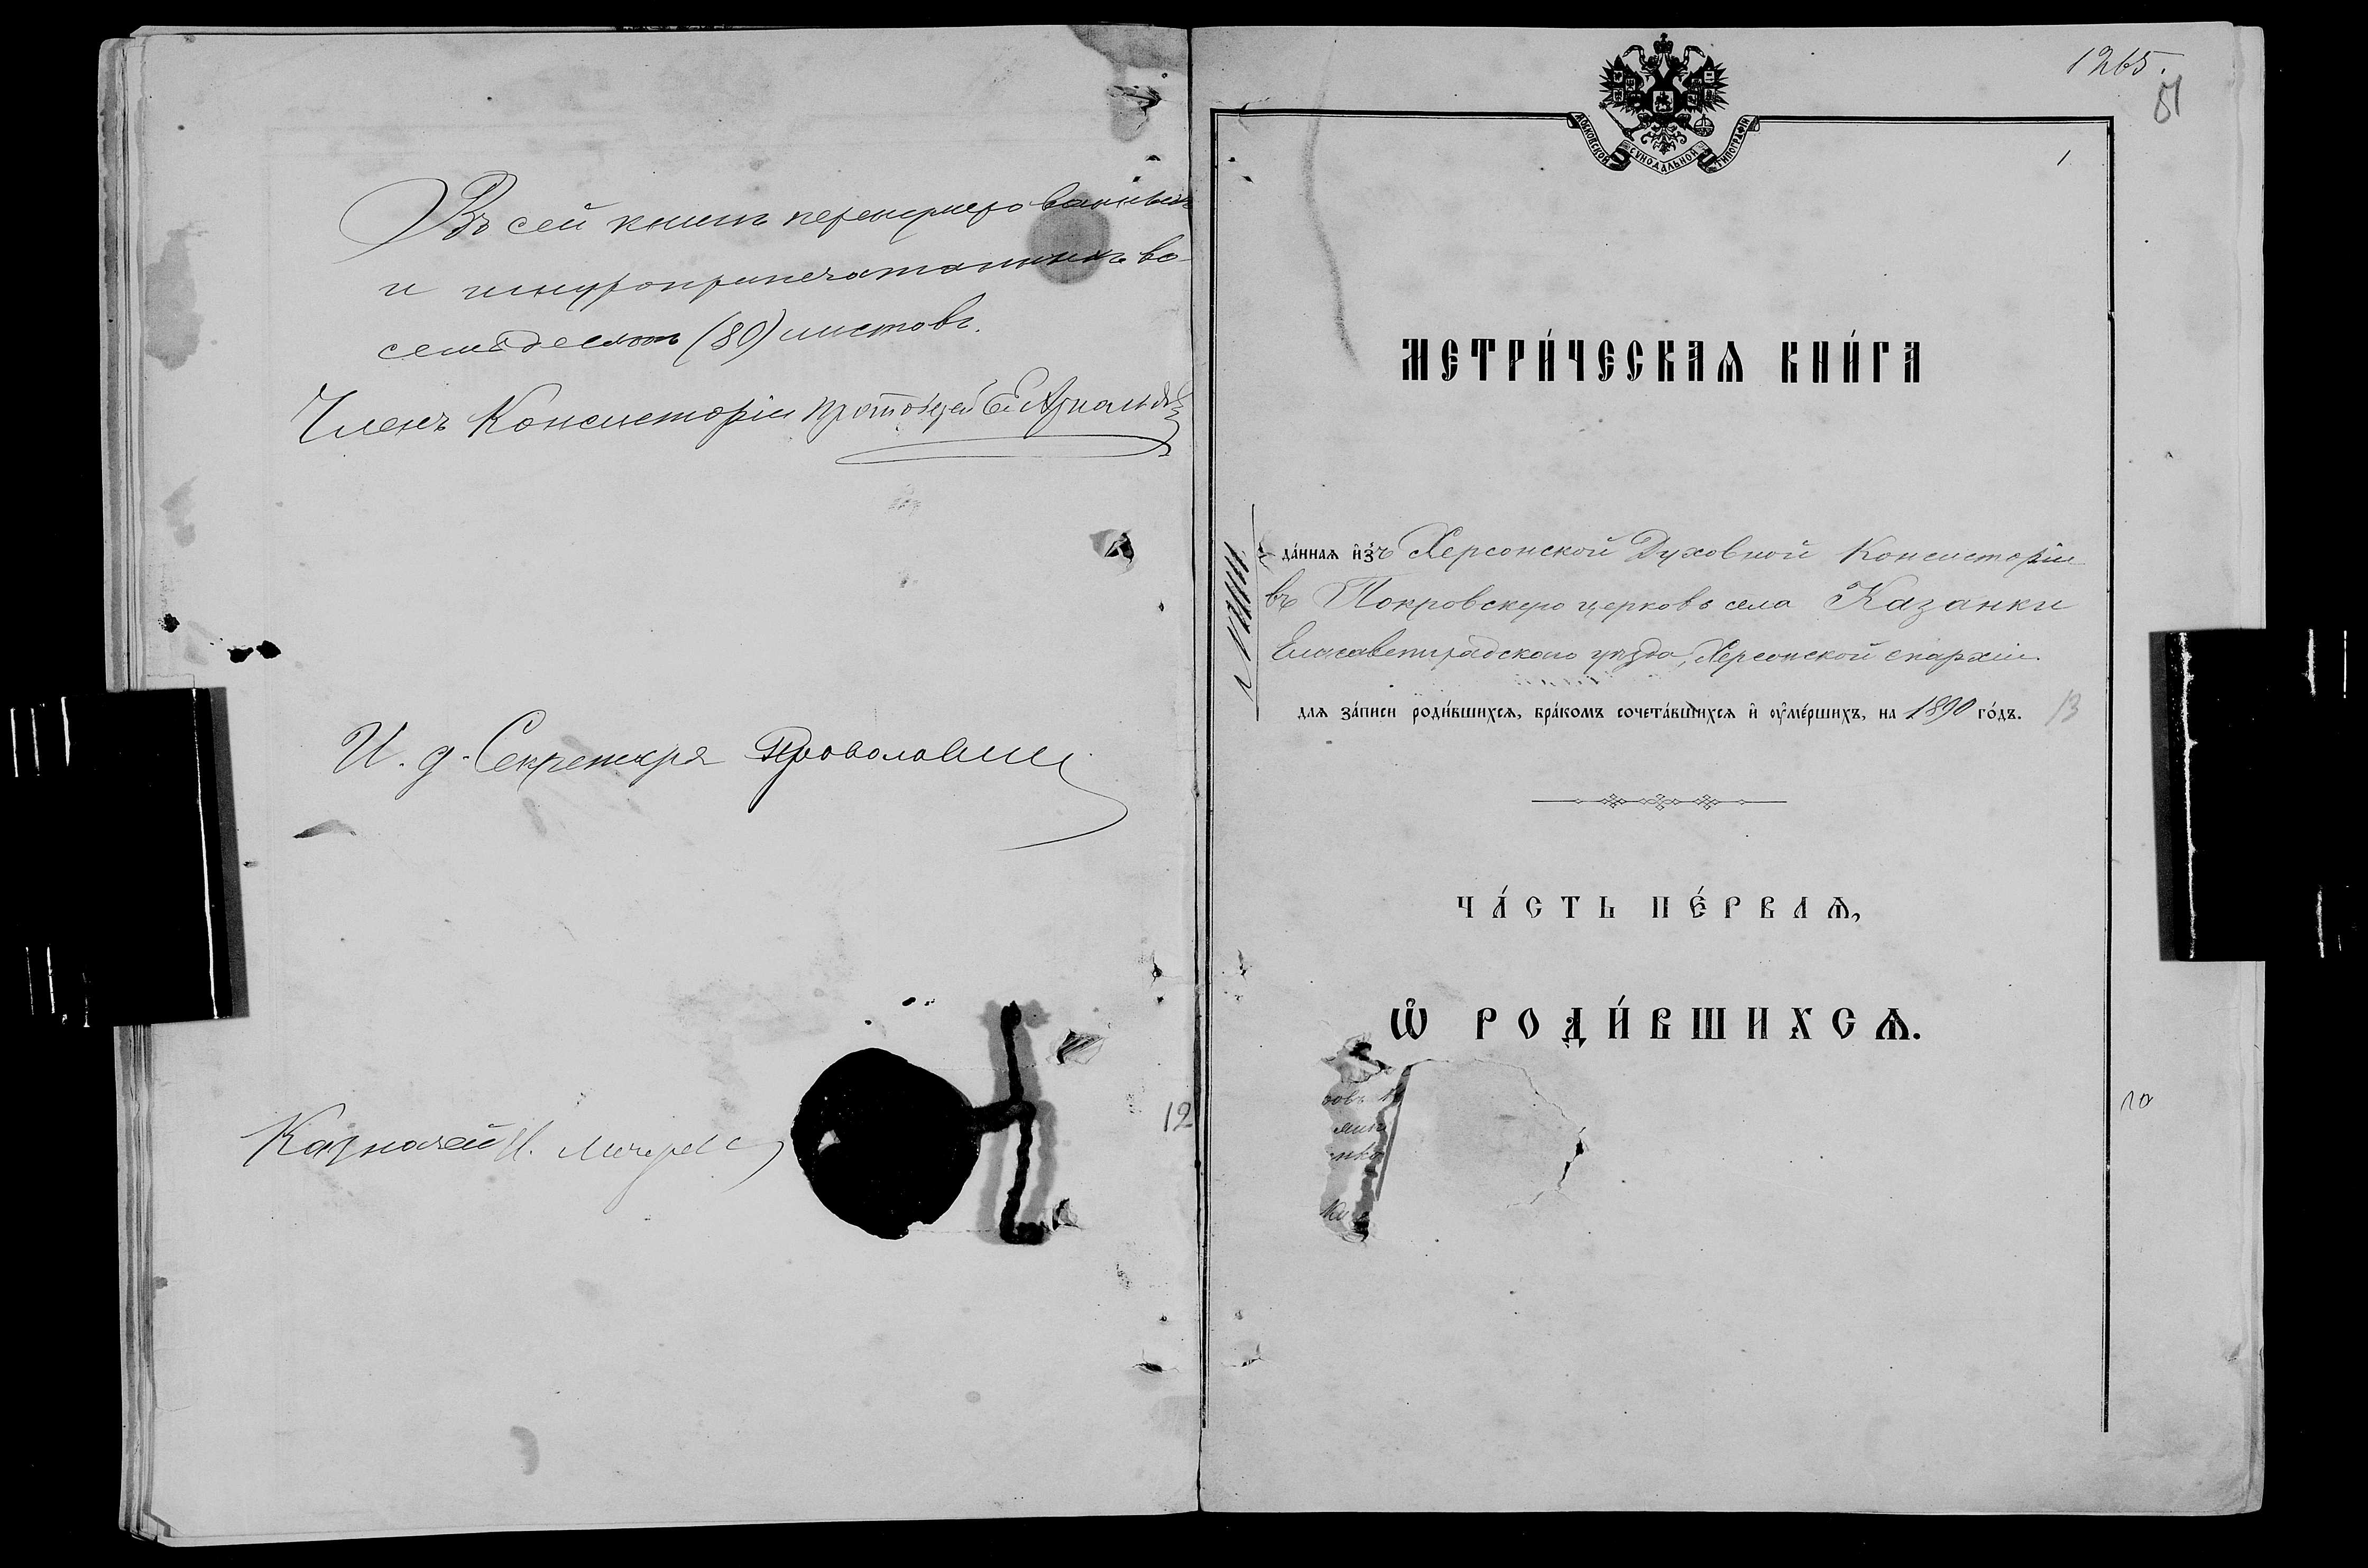 Въ сей книгѣ перенумерованныхъ
и шнуроприпечатанныхъ во-
семьдесятъ (80) листовъ.
Членъ Консисторіи протоіерей
И. д. Секретаря
Казначей
12
1265.
51
МОСКОВСКОЙ СѴНОДАЛЬНОЙ ТИПОГРАФІИ
1
МЕТРИ́ЧЕСКАѦ КНИ́ГА
да́ннаѧ и҆́зъ Херсонской Духовной Консисторіи
въ Покровскую церковь села Казанки
Елисаветградскаго уѣзда, Херсонской епархіи.
для за́писи роди́вшихсѧ, бра́комъ сочета́вшихсѧ и҆ ᲂу҆ме́ршихъ, на 1890 го́дъ.
13
ЧА́СТЬ ПЕ́РВАѦ,
Ѡ҆ РОДИ́ВШИХСѦ.